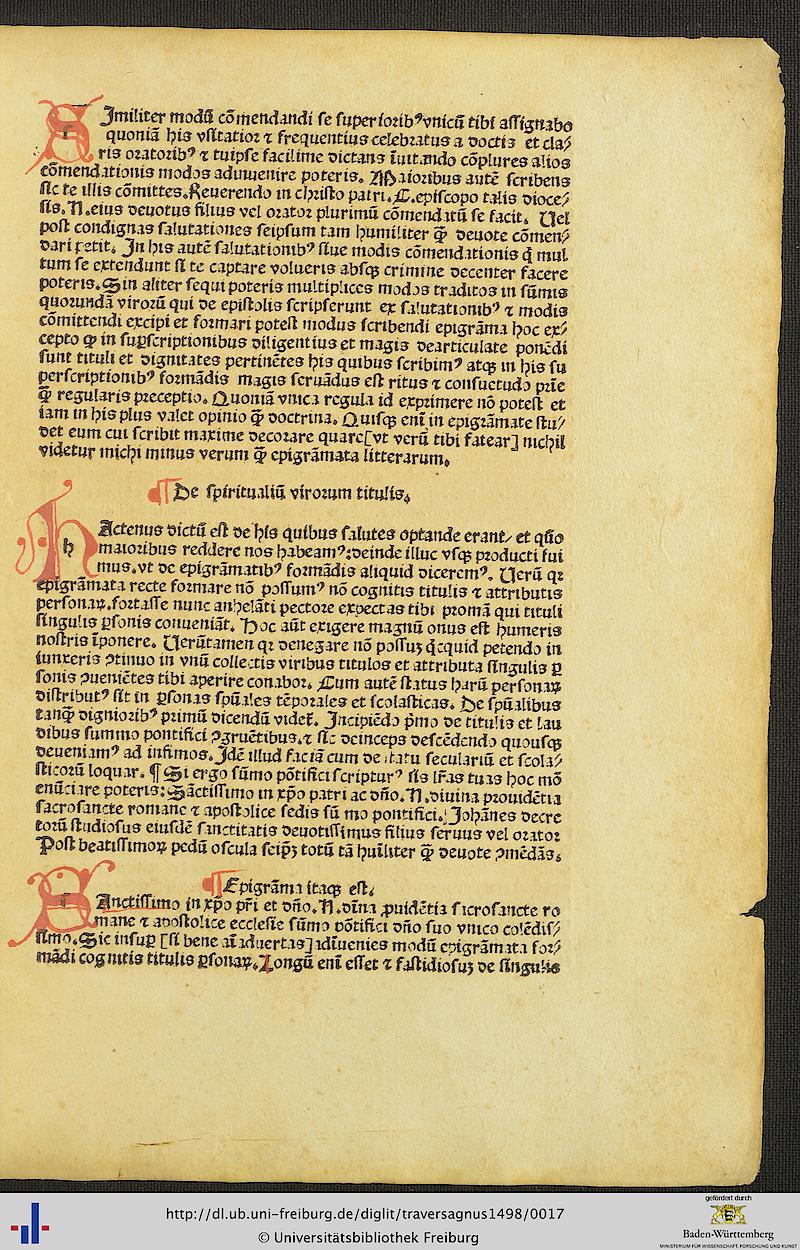 SImiliter modū cōmendandi se superioribꝰ vnicū tibi assignabo
quoniā his vsitatior ⁊ frequentius celebratus a doctis et cla⸗
ris oratoribꝰ ⁊ tuipse facilime dictans īuitando cōplures alios
cōmendationis modos adinuenire poteris. Maioribus autē scribens
sic te illis cōmittes. Reuerendo in christo patri. C. episcopo talis dioce⸗
sis. N. eius deuotus filius vel orator plurimū cōmendatū se facit. Uel
post condignas salutationes seipsum tam humiliter q̄ꝫ deuote cōmen⸗
dari petit. In his autē salutationibꝰ siue modis cōmendationis q̇ mul
tum se extendunt si te captare volueris absqꝫ crimine decenter facere
poteris. Sin aliter sequi poteris multiplices modos traditos in sūmis
quorundā virorū qui de epistolis scripserunt ex salutationibꝰ ⁊ modis
cōmittendi excipi et formari potest modus scribendi epigrāma hoc ex⸗
cepto ꝙ in suꝑscriptionibus diligentius et magis dearticulate ponēdi
sunt tituli et dignitates pertinētes his quibus scribimꝰ atqꝫ in his su
perscriptionibꝰ formādis magis seruādus est ritus ⁊ consuetudo pr̄ie
q̄ꝫ regularis preceptio. Quoniā vnica regula id exprimere nō potest et
iam in his plus valet opinio q̄ꝫ doctrina. Quisqꝫ enī in epigrāmate stu⸗
det eum cui scribit maxime decorare quare[vt verū tibi fatear] nichil
videtur michi minus verum q̄ꝫ epigrāmata litterarum.
¶ De spiritualiū virorum titulis.
h
HActenus dictū est de his quibus salutes optande erant, et quō
maioribus reddere nos habeamꝰ: deinde illuc vsqꝫ producti fui
mus. vt de epigrāmatibꝰ formādis aliquid diceremꝰ. Uerū qꝛ
epigrāmata recte formare nō possumꝰ nō cognitis titulis ⁊ attributis
personaꝝ. fortasse nunc anhelāti pectore expectas tibi promā qui tituli
singulis ꝑsonis conueniāt. Hoc aūt exigere magnū onus est humeris
nostris īponere. Uerūtamen qꝛ denegare nō possuꝫ q̇cquid petendo in
iunxeris ꝯtinuo in vnū collectis viribus titulos et attributa singulis ꝑ
sonis ꝯueniētes tibi aperire conabor. Cum autē status harū personaꝝ
distributꝰ sit in ꝑsonas spūales tēporales et scolasticas. De spūalibus
tanq̄ꝫ dignioribꝰ primū dicendū videt̄. Incipiēdo p̄mo de titulis et lau
dibus summo pontifici ꝯgruētibus. ⁊ sic deinceps descēdendo quousqꝫ
deueniamꝰ ad infimos. Idē illud faciā cum de statu seculariū et scola⸗
sticorū loquar. ¶ Si ergo sūmo pōtifici scripturꝰ sis lr̄as tuas hoc mō
enūciare poteris: Sāctissimo in xp̄o patri ac dn̄o. N. diuina prouidētia
sacrosancte romane ⁊ apostolice sedis sū mo pontifici. Johānes decre
torū studiosus eiusdē sanctitatis deuotissimus filius seruus vel orator
Post beatissimoꝝ pedū oscula seip̄ꝫ totū tā hūiliter q̄ꝫ deuote ꝯmēdās.
¶ Epigrāma itaqꝫ est.
SAnctissimo in xp̄o pr̄i et dn̄o. N. dīna ꝓuidētia sacrosancte ro
mane ⁊ apostolice ecclesie sūmo pōtifici dn̄o suo vnico colēdis⸗
simo. Sic insuꝑ [si bene aīaduertas] adīuenies modū epigrāmata for⸗
mādi cognitis titulis ꝑsonaꝝ. Longū enī esset ⁊ fastidiosuꝫ de singulis
http://dl.ub.uni-freiburg.de/diglit/traversagnus1498/0017
© Universitätsbibliothek Freiburg
gefördert durch
Baden-Württemberg
MINISTERIUM FÜR WISSENSCHAFT, FORSCHUNG UND KUNST